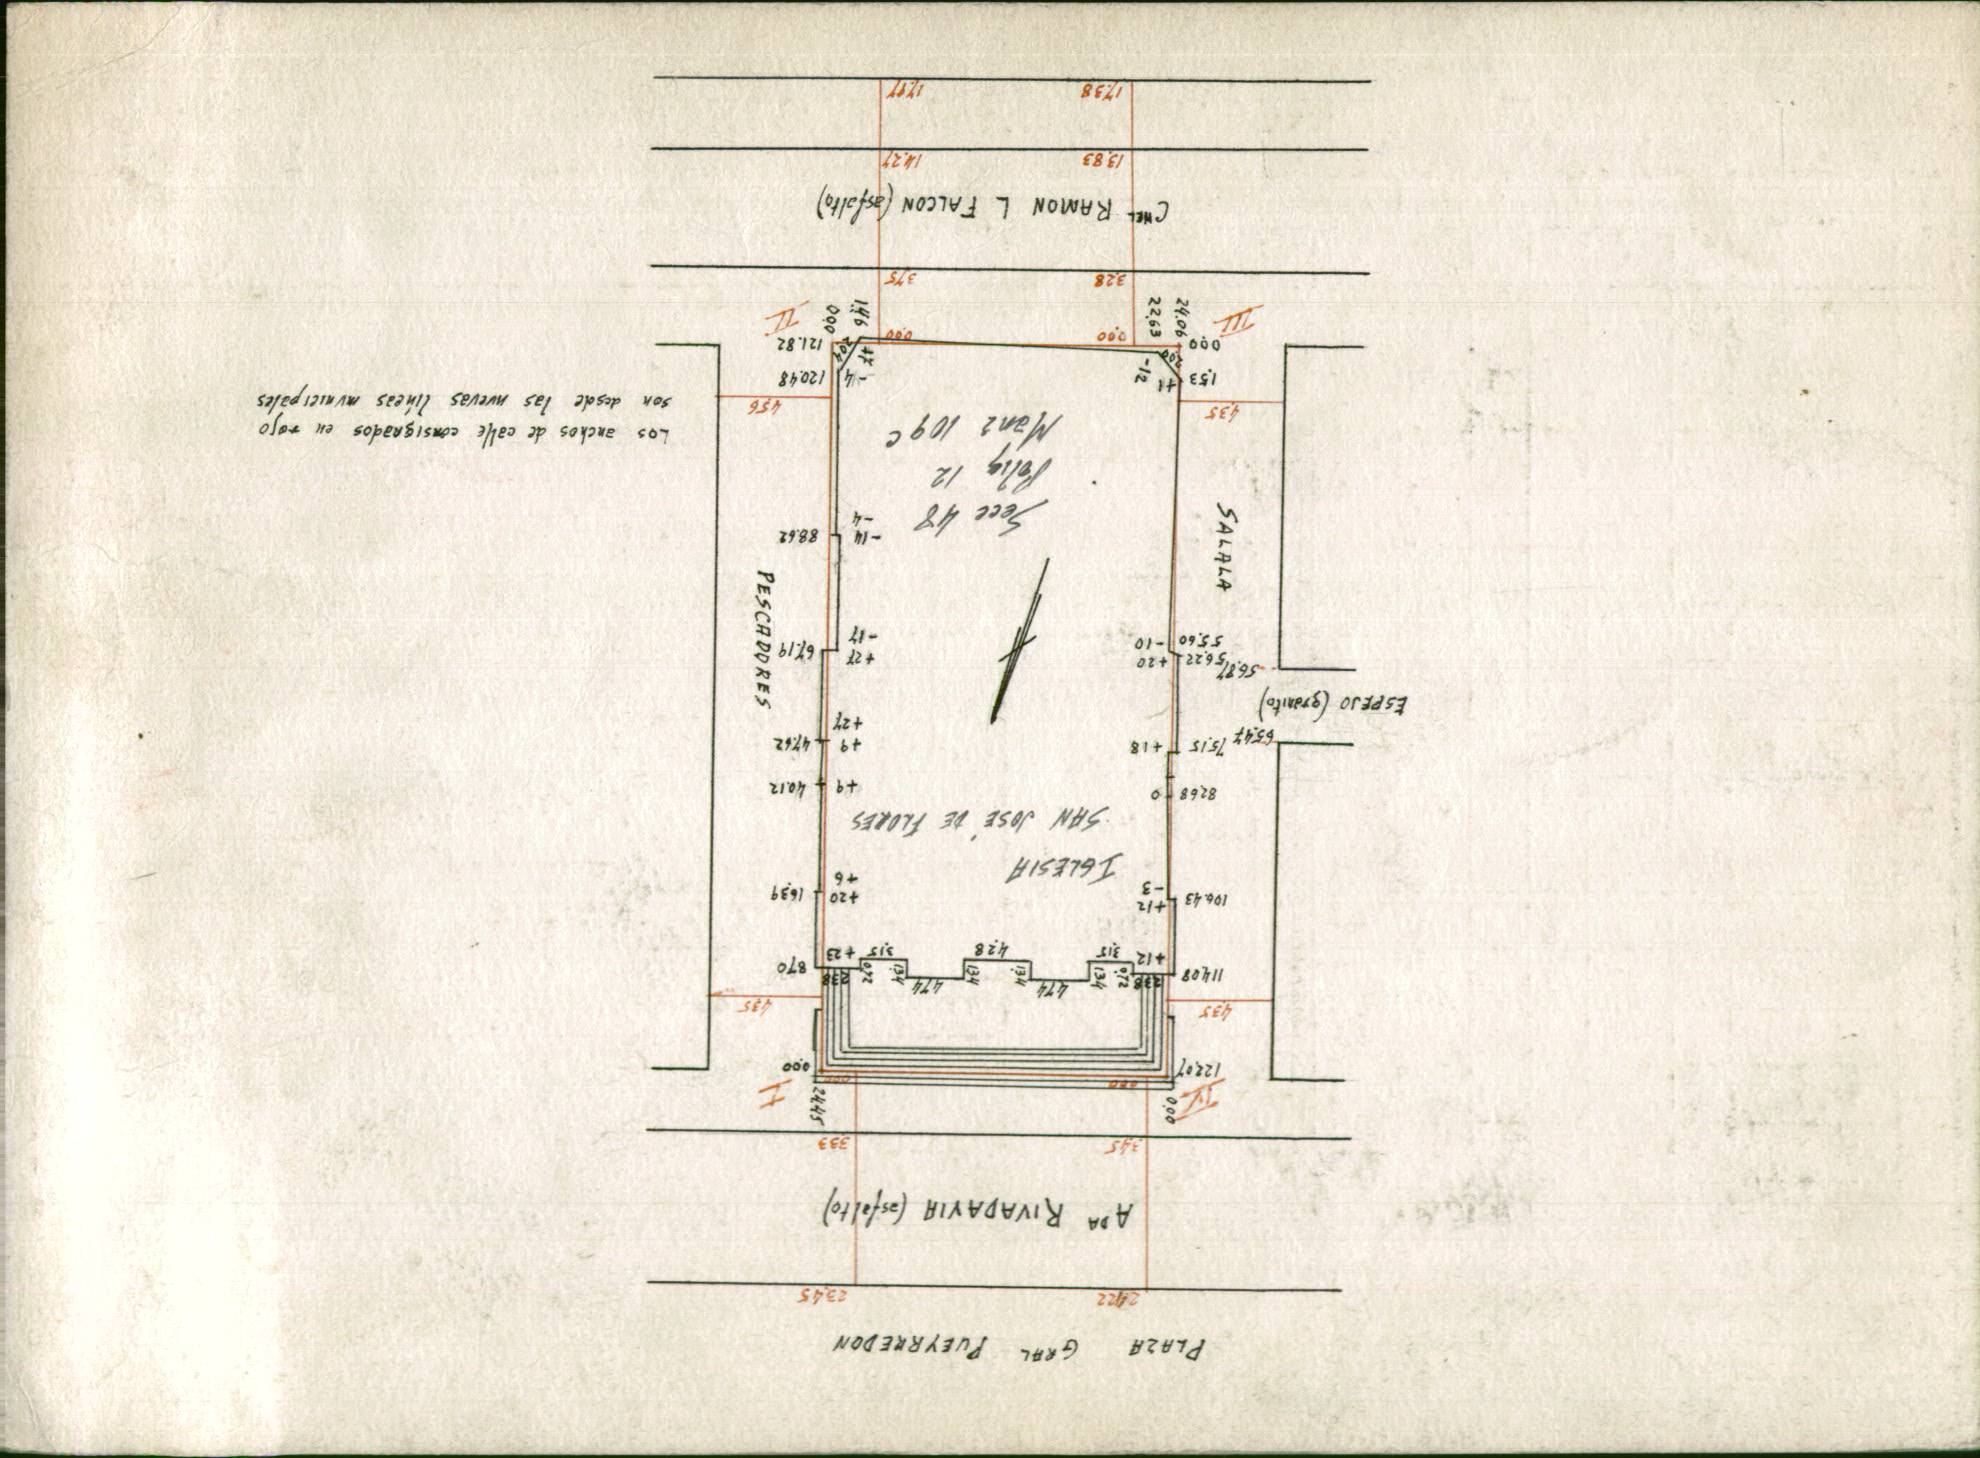 PLAZA GRAL PUEYRREDON
24.22 23.45
ADA RIVADAVIA (asfalto)
3.45 3.33
IV 0.00 24.45 I
122.07 0.00 0.00 0.00
4.35 4.35
4.74 4.74
114.08 2.38 0.72 1.34 1.34 1.34 1.34 0.72 2.38 8.70
+12 3.15 4.28 3.15 +23
106.43 +12 +20 16.39
-3 +6
IGLESIA
SAN JOSE DE FLORES
82.68 0 +9 40.12
75.15 +18 +9 47.62
65.47 +27
ESPEJO (granito)
56.87
56.22 +20 +27 67.19
55.60 -10 -17
PESCADORES
SALALA
-14 88.62
-4
Secc 48
Polig 12
Manz 109 C
Los anchos de calle consignados en rojo
son desde las nuevas líneas municipales
4.35 4.56
1.53 +1 -12 -4 120.48
2.00 +7 2.04
0.00 0.00 0.00 121.82
III 24.06 22.63 1.46 0.00 II
3.28 3.75
CNEL RAMON L FALCON (asfalto)
13.83 14.27
17.38 17.97